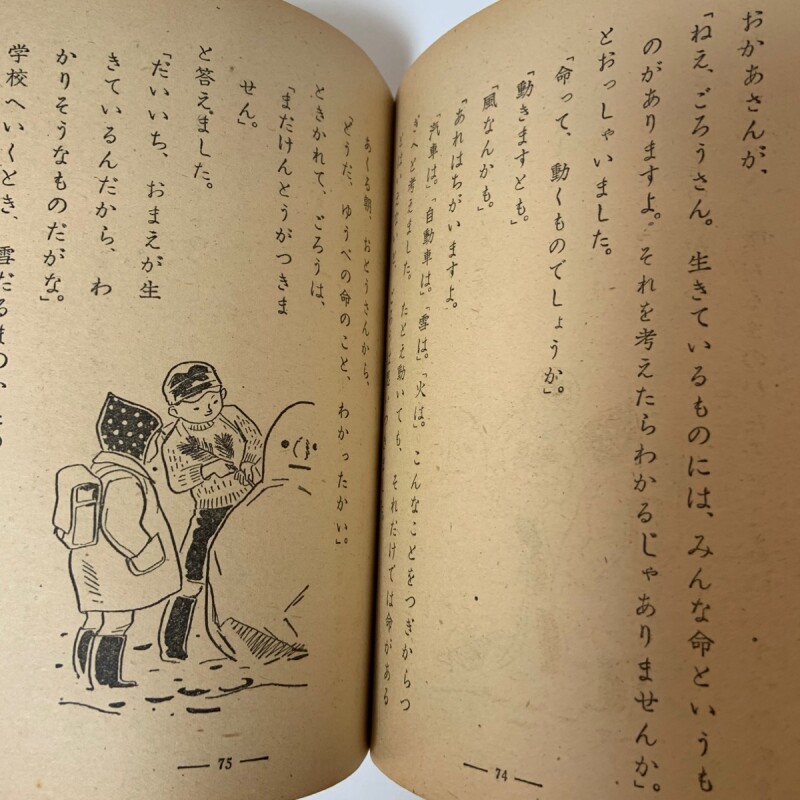 おかあさんが、
「ねえ、ごろうさん。生きているものには、みんな命というも
のがありますよ。それを考えたらわかるじゃありませんか」。
とおっしゃいました。
「命って、動くものでしょうか」。
「動きますとも」。
「風なんかも」。
「あれはちがいますよ。
「汽車は」。「自動車は」。「雪は」。「火は」。こんなことをつぎからつ
ぎへと考えました。たとえ動いても、それだけでは命がある
— 74 —
あくる朝、おとうさんから、
「どうだ、ゆうべの命のこと、わかったかい」。
ときかれて、ごろうは、
「まだけんとうがつきま
せん」。
と答えました。
「だいいち、おまえが生
きているんだから、わ
かりそうなものだがな」。
学校へいくとき、雪だるまの
— 75 —